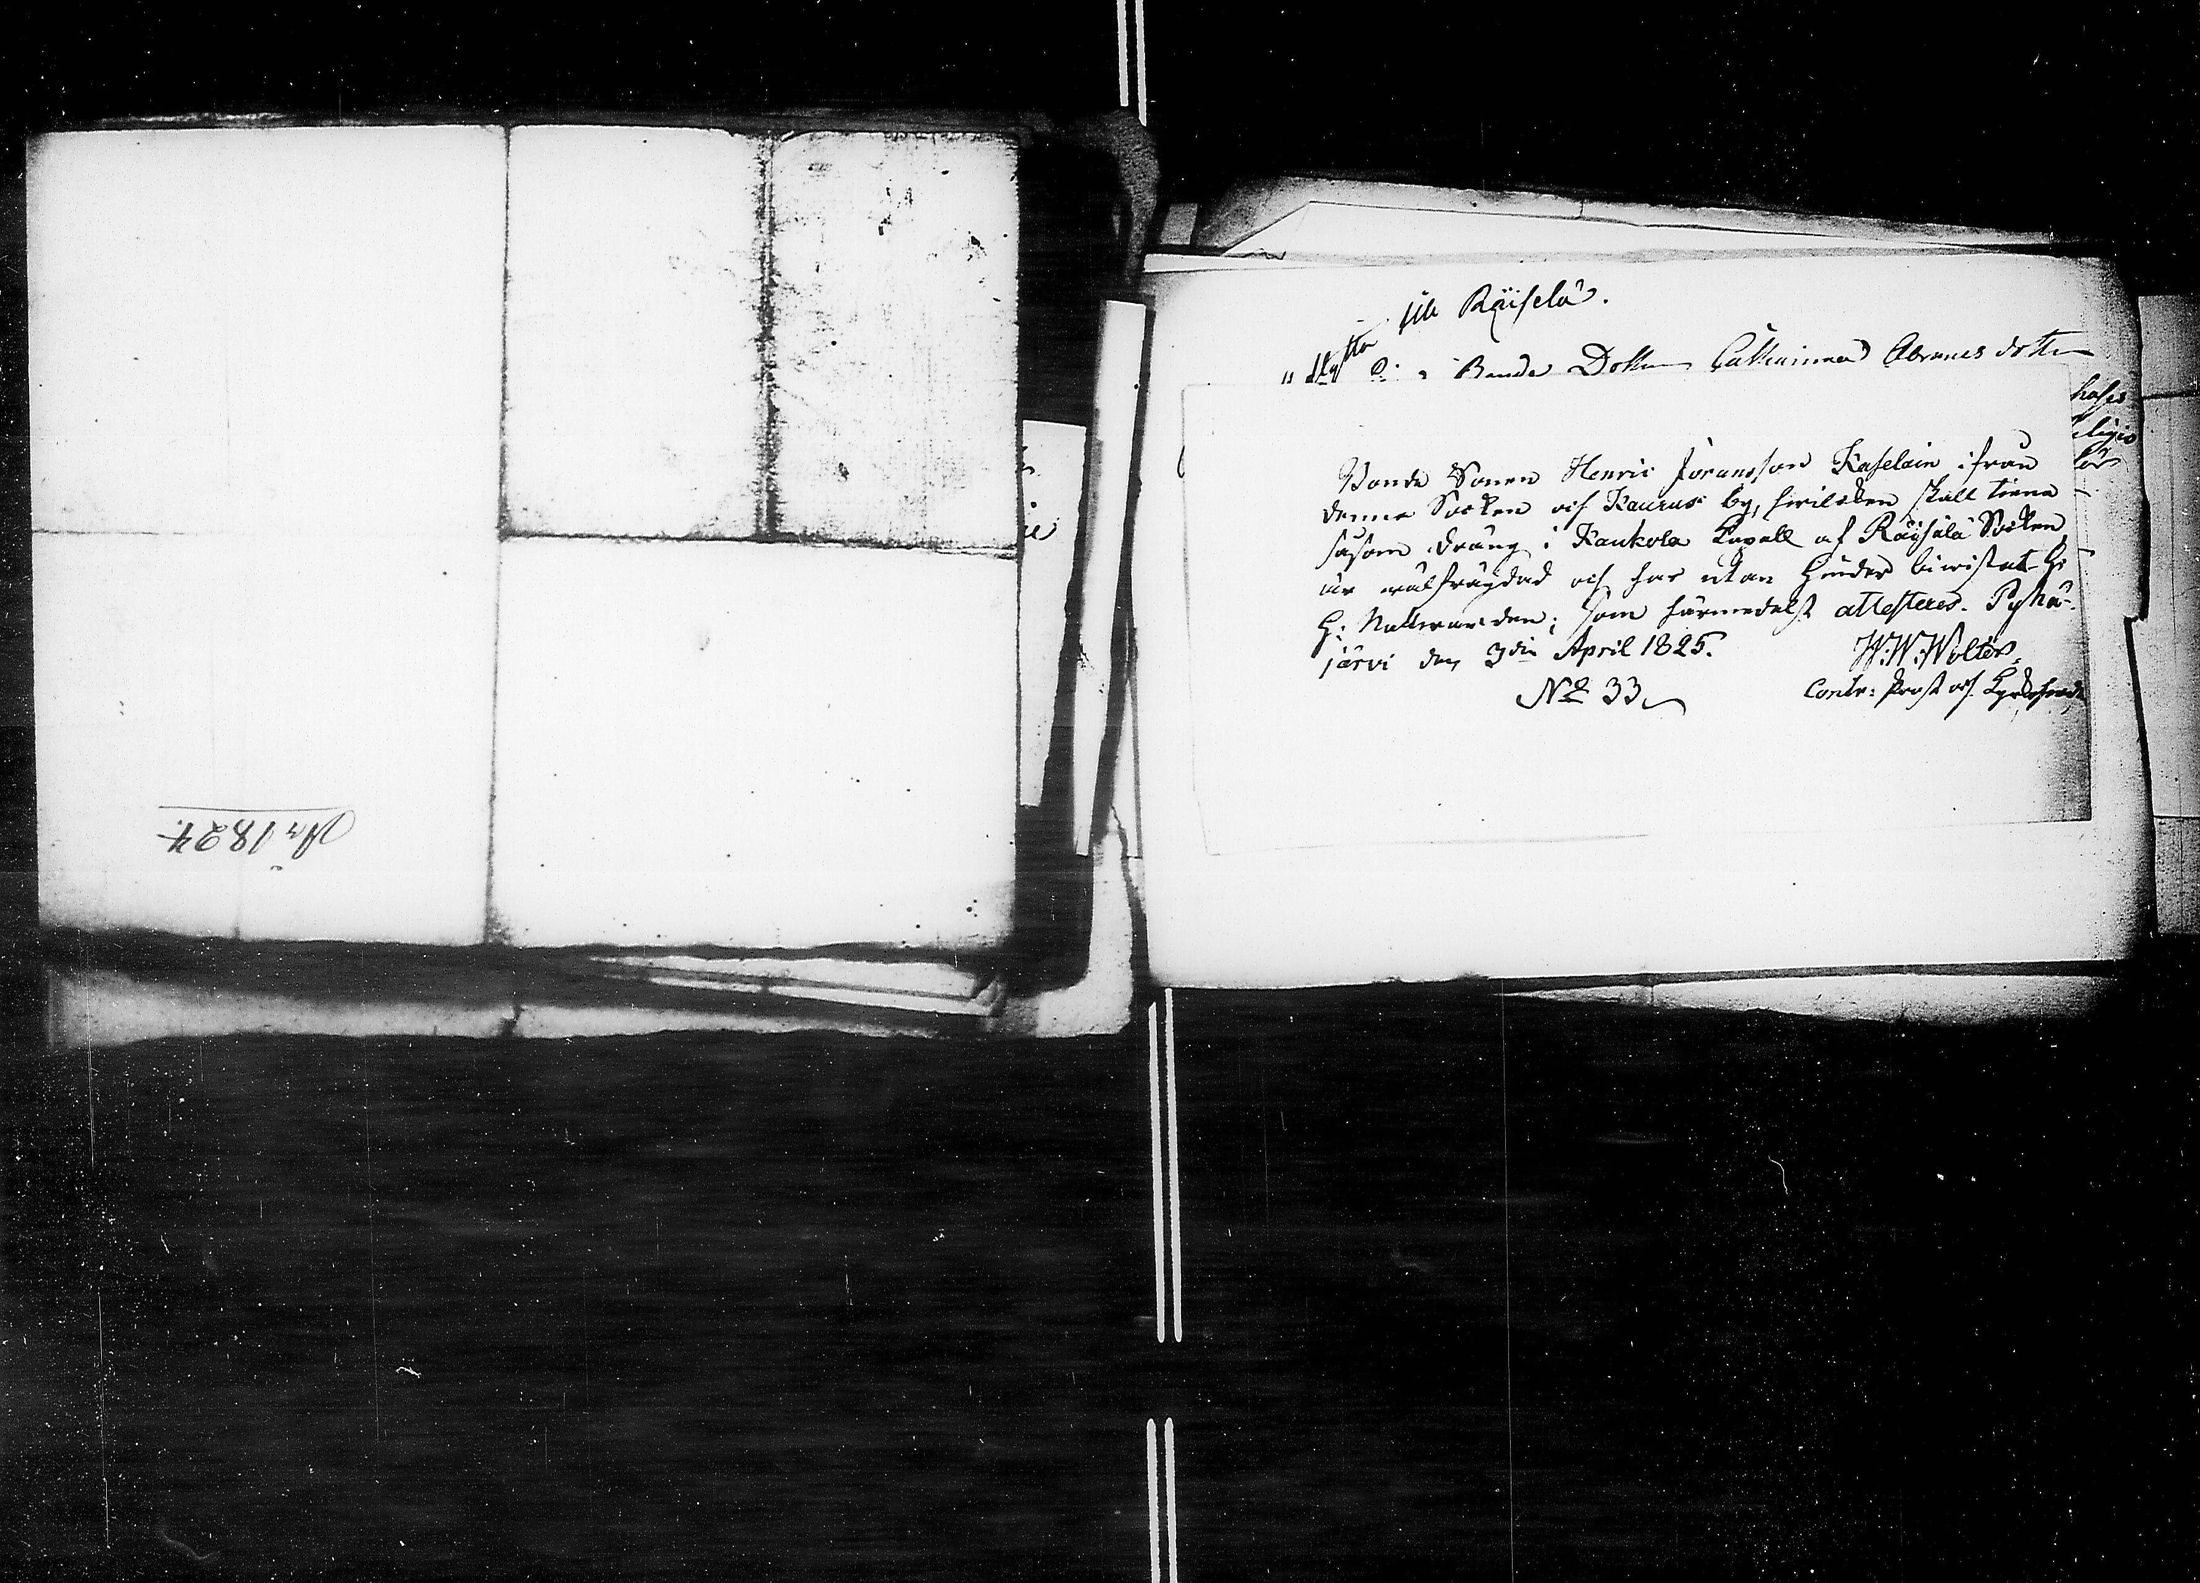 År 1824.
till Räisälä.
Bonde Dottren Catharina Abramsdotter
Bonde Sonen Henric Jöransson Kaselain ifrån
denna Socken och Kaurus by, hwilcken skall tiena
såsom dräng i Kaukola Capell af Räisälä Socken,
är wälfrägdad och har utan hinder biwistat H:
H: Nattwarden; som härmedelst attesteras. Pyhä-
järvi den 3die April 1825.
W:W:Wolter,
Contr: Prost och Kyrkoherde
No 33